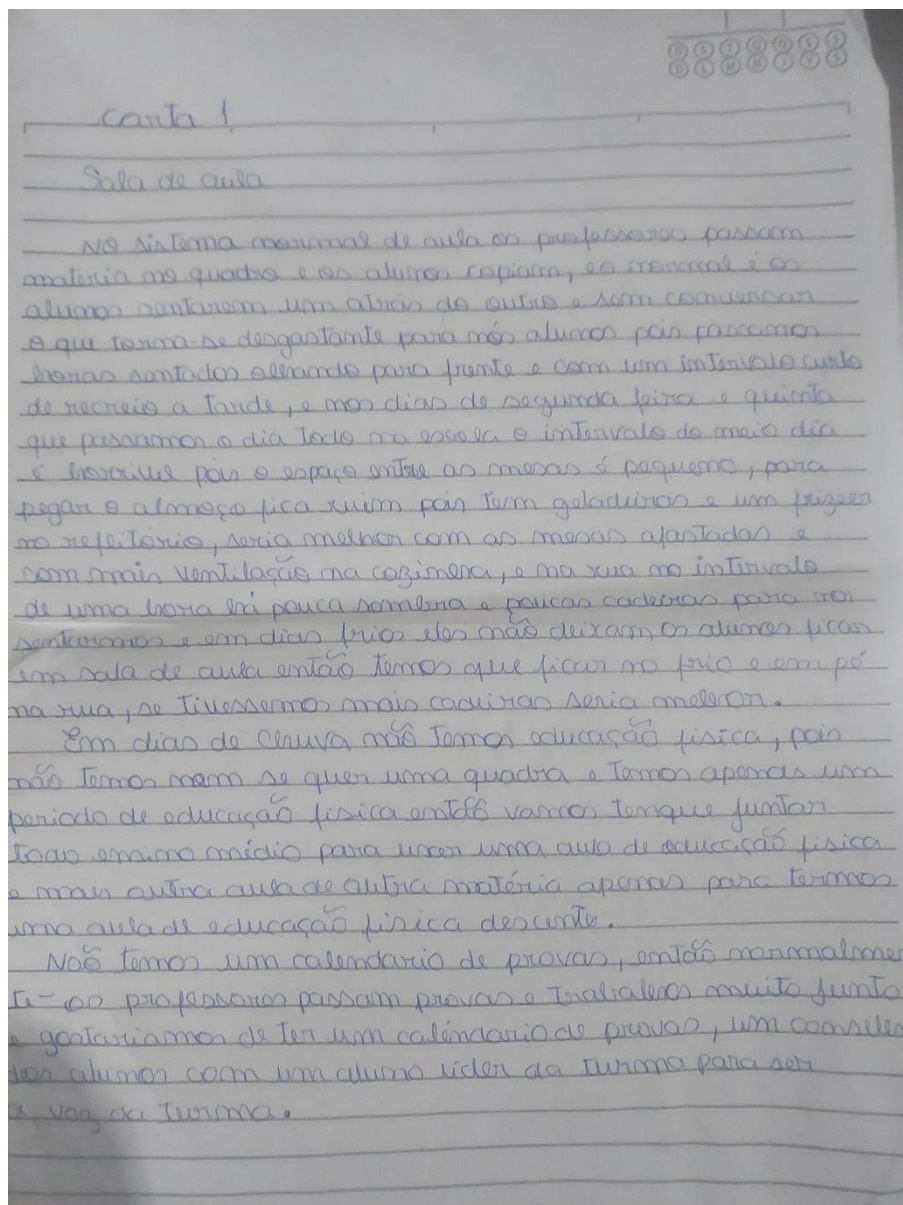 D S T Q Q S S
D L M M J V S
Carta 1
Sala de aula
No sistema normal de aula os professores passam
materia no quadro e os alunos copiam, eo normal é os
alunos sentarem um atrás do outro e sem conversar
o que torna-se desgastante para nós alunos pois passamos
horas sentados olhando para frente e com um intervalo curto
de recreio a tarde, e nos dias de segunda feira e quinta
que passamos o dia todo na escola o intervalo do meio dia
é horrivel pois o espaço entre as mesas é pequeno, para
pegar o almoço fica ruim pois tem geladeiras e um frizeer
no refeitório, seria melhor com as mesas afastadas e
com mais ventilação na cozinhera, e na rua no intervalo
de uma hora há pouca sombra e poucas cadeiras para nos
sentarmos e em dias frios eles não deixam os alunos ficar
em sala de aula então temos que ficar no frio e em pé
na rua, se tivessemos mais cadeiras seria melhor.
Em dias de chuva não temos educação fisica, pois
não temos nem se quer uma quadra e temos apenas um
periodo de educação fisica então vamos tenque juntar
todo ensino médio para uma aula de educação fisica
e mais outra aula de outra matéria apenas para termos
uma aula de educação fisica descente.
Não temos um calendario de provas, então normalmen
te os professores passam provas e trabalhos muito junto
e gostariamos de ter um caléndario de provas, um conselho
dos alunos com um aluno lider da turma para ser
a voz da turma.